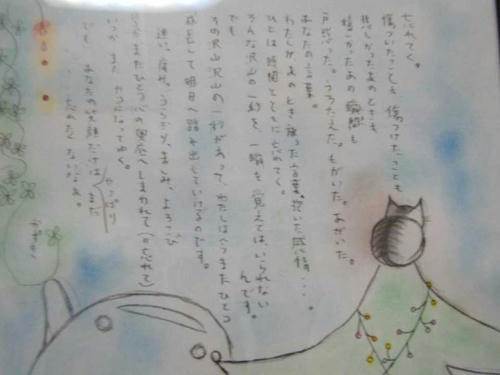 忘れてく。
傷ついたことも 傷つけたことも
悲しかったあのときも
嬉しかったあの瞬間も
戸惑った。うろたえた。もがいた。あがいた。
あなたの言葉。
わたしがあのとき放った言葉、抱いた感情・・・。
ひとは時間とともに忘れてく。
そんな沢山の一秒を、一瞬を、覚えては、いられないんです。
でも
その沢山沢山の一秒があって、わたしは今またひとつ
成長して明日へ踏み出していけるのです。
迷い、痛み、うらだち、悲しみ、よろこび
今がまたひとつ心の奥底へしまわれて(=忘れて)
いつかまた カコになってゆく。
でも あなたの笑顔だけは やっぱり まだ
・・・忘れたくないなぁ。